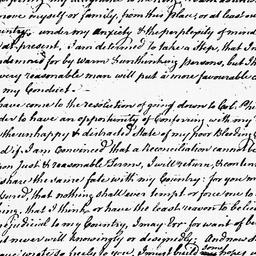 move myself or family, from this place, or at least
under my anxiety & the perplexity of mind
at present, I am determined to take a step, that I
condemned for by warm & unthinking persons, but th
very reasonable man will put a more favourable
my Conduct.
have come to the resolution of going down to Col. Ph
der to have an opportunity of Conferring with my
th unhappy & distracted State of my poor Bleeding
d if I am Convinced that a Reconciliation cannot be
upon Just & reasonable Terms, I will return, & conten
share the same fate with my Country: for you m
sured, that nothing shall ever tempt or force me to
ing, that I think, or have the least reason to believ
prejudicial to my Country, I may Err for want of
but never will knowingly or designedly; And now
write so freely to you, I must build my hopes